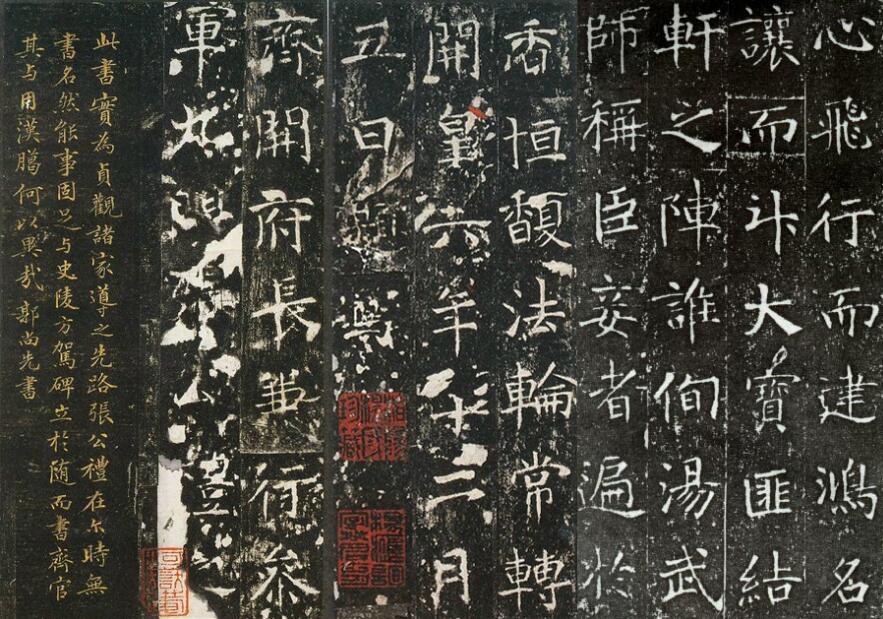 心飛行而建鴻名
讓而升大寶匪結
軒之陣誰徇湯武
師稱臣妾者遍於
香恒馥法輪常轉
開皇六年十二月
五日題寫
齊開府長兼行參
軍九門張公禮之
此書實為貞觀諸家導之先路張公禮在尒時無
書名然能事固足与史陵方駕碑立於随而書齊官
其与用漢臘何以異哉 郭尚先書